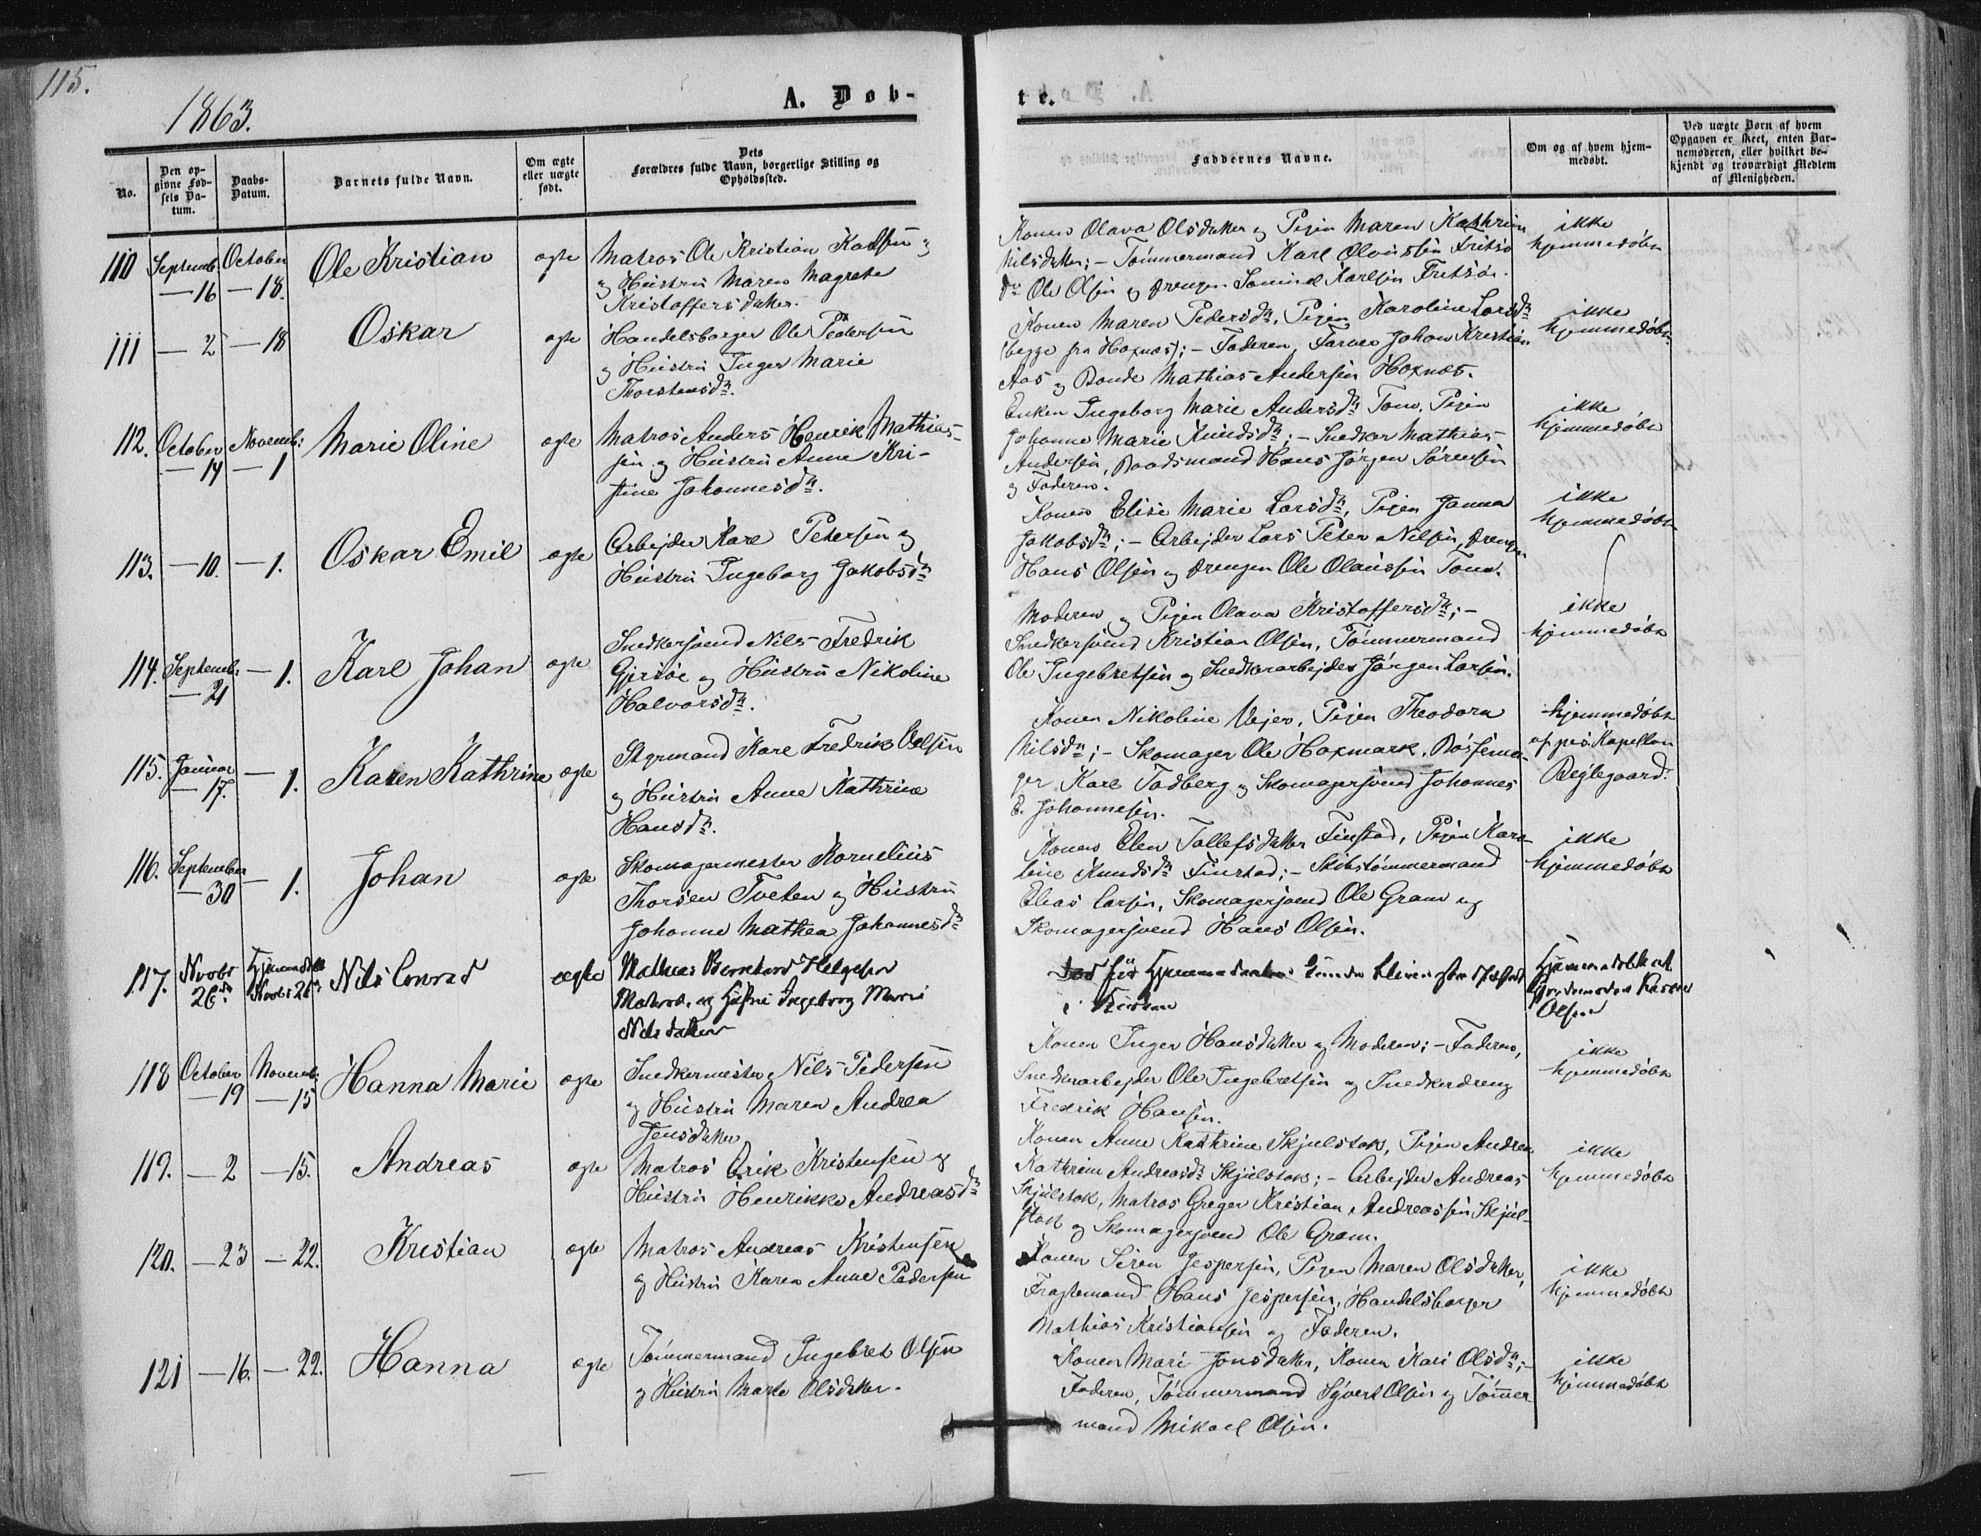 115.
1863.
A. Døb-
te.
No.
Den op-
givne Fød-
sels Da-
tum.
Daabs-
Datum.
Barnets fulde Navn.
Om ægte
eller uægte
født.
Dets
Forældres fulde Navn, borgerlige Stilling og
Opholdssted.
Faddernes Navne.
Om og af hvem hjem-
medøbt.
Ved uægte Børn af hvem
Opgaven er skeet, enten Bar-
nemoderen, eller hvilket be-
kjendt og troværdigt Medlem
af Menigheden.
110 Septemb. 16 October 18. Ole Kristian ægte
Matros Ole Kristian
og Hustru Maren Magrete
Kristoffersdatter.
Konen Olava Olsdatter og Pigen Maren Kathrine
Nilsdatter; – Tømmermand Karl Fritsø
do Ole Olsen og Drengen Karlsen Fritsø.
ikke
hjemmedøbt
111 — 2 — 18 Oskar ægte
Handelsborger Ole Pedersen
og Hustru Inger Marie
Thorstensdr.
Konen Maren Pedersdr, Pigen Karoline Larsdr
(begge fra Hoxnæs); – Faderen, Farver Johan Kristian
Aas og Bonde Mathias Andersen Hoxnæs.
ikke
hjemmedøbt
112. October — 14 Novemb: — 1 Marie Oline ægte
Matros Anders Henrik Mathias-
sen og Hustru Anne Kri-
stine Johannesdr.
Enken Ingeborg Marie Andersdr Pigen
Johanne Marie Knudsdr; – Snedker Mathias
Andersen, Baadsmand Hans Jørgen Sørensen
og Faderen.
ikke
hjemmedøbt
113. — 10. — 1. Oskar Emil ægte
Arbejder Karl Petersen og
Hustru Ingeborg Jakobsdr
Konen Elise Marie Larsdr, Pigen Janna
Jakobsdr; – Arbejder Lars Peter Nilsen, Drengen
Hans Olsen og Drengen Ole Olaussen
ikke
hjemmedøbt
114. Septemb: — 21 — 1. Karl Johan ægte
Snedkersvend Nils Fredrik
og Hustru Nikoline
Halvorsdr.
Moderen og Pigen Olava Kristoffersdr; –
Snedkersvend Kristian Olsen, Tømmermand
Ole Ingebretsen og Snedkerarbejder Jørgen Larsen.
ikke
hjemmedøbt
115. Januar — 17. — 1. Karen Kathrine ægte
Styrmand Karl Fredrik Olsen
og Hustru Anne Kathrine
Hansdr.
Konen Nikoline Vejer, Pigen Theodora
Nilsdr; – Skomager Ole Hoxmark, Bøssema-
ger Karl Fadberg og Skomagersvend Johannes
E. Johannesen.
hjemmedøbt
af pers. Kapellan
Bejlegaard.
116. September — 30 — 1. Johan ægte
Skomagermester Kornelius
Thorsen Tveten og Hustru
Johanne Mathea Johannesdr
Konen Elen Tollefsdatter Finstad, Pigen Karo-
line Knudsdr Finstad; – Skibstømmermand
Elias Larsen, Skomagersvend Ole Gram og
Skomagersvend Hans Olsen.
ikke
hjemmedøbt
117. Novbr 26de Novbr 26 Nils Conrad ægte
Mathias Bernhard Helgesen
Matros, og Hustru Ingeborg Marie
Nilsdatter
i Kirken
Hjemmedøbt af
Olsen
118 October — 19 Novemb: — 15 Hanna Marie ægte
Snedkermester Nils Pedersen
og Hustru Maren Andrea
Jensdatter
Konen Inger Hansdatter og Moderen; – Faderen,
Snedkerarbejder Ole Ingebretsen og Snedkerdreng
Fredrik Hansen.
ikke
hjemmedøbt
119. — 2 — 15. Andreas ægte
Matros Erik Kristensen og
Hustru Henrikke Andreasdr
Konen Anne Kathrine Skjulstok, Pigen Andrea
Kathrine Andreasdr Skjulstok; – Arbejder Andreas
Skjulstok, Matros Greger Kristian Andreassen Skjul-
stok og Skomagersvend Ole Gram.
ikke
hjemmedøbt
120. — 23 — 22. Kristian ægte
Matros Andreas Kristensen
og Hustru Karen Anne Pedersen
Konen Siren Jespersen, Pigen Maren Olsdatter,
Fragtemand Hans Jespersen, Handelsborger
Mathias Kristiansen og Faderen.
ikke
hjemmedøbt
121 — 16. — 22. Hanna ægte
Tømmermand Ingebret Olsen
og Hustru Marte Olsdatter.
Konen Mari Jonsdatter, Konen Kari Olsdr; –
Faderen, Tømmermand Syvert Olsen og Tømmer-
mand Mikael Olsen.
ikke
hjemmedøbt